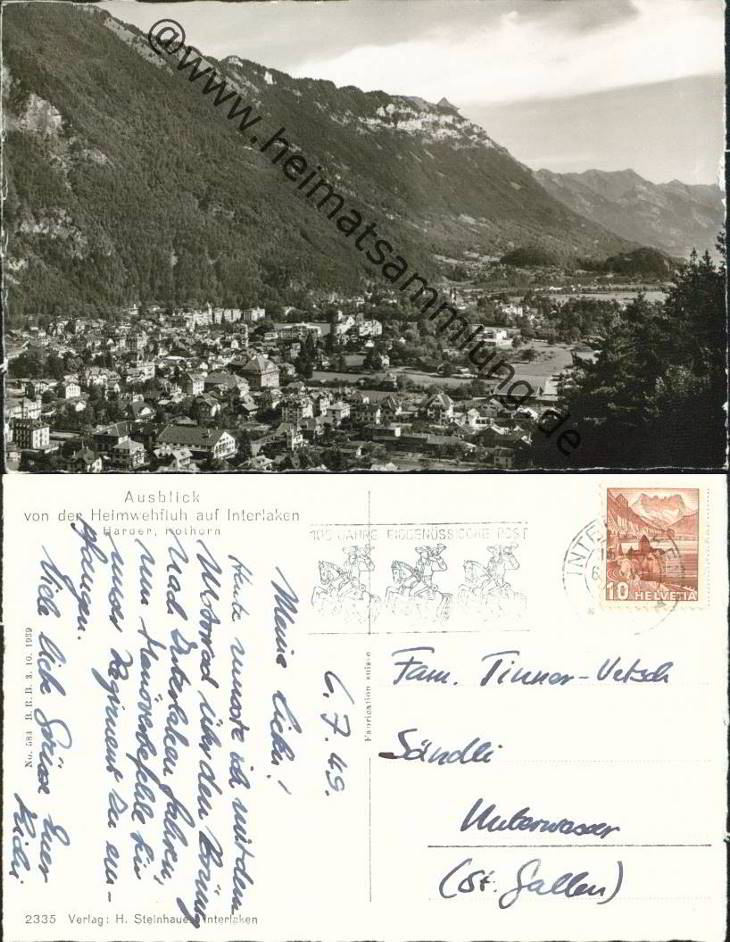 @www.heimatsammlung.de
Ausblick
von der Heimwehfluh auf Interlaken
Harder, Rothorn
100 JAHRE EIDGENÖSSISCHE POST
INTE
10 HELVETIA
6.7.49.
Meine Lieben!
Heute musste ich mit dem
Motorrad über den Brünig
nach Interlaken fahren,
um Manöverbefehle für
unser Regiment zu em-
pfangen.
Viele liebe Grüsse Euer
Fabrication suisse
Fam. Tinner-Uetsch
Sändli
Unterwasser
(St. Gallen)
No. 584 B.R.B. 3. 10. 1939
2335 Verlag: H. Steinhauer, Interlaken